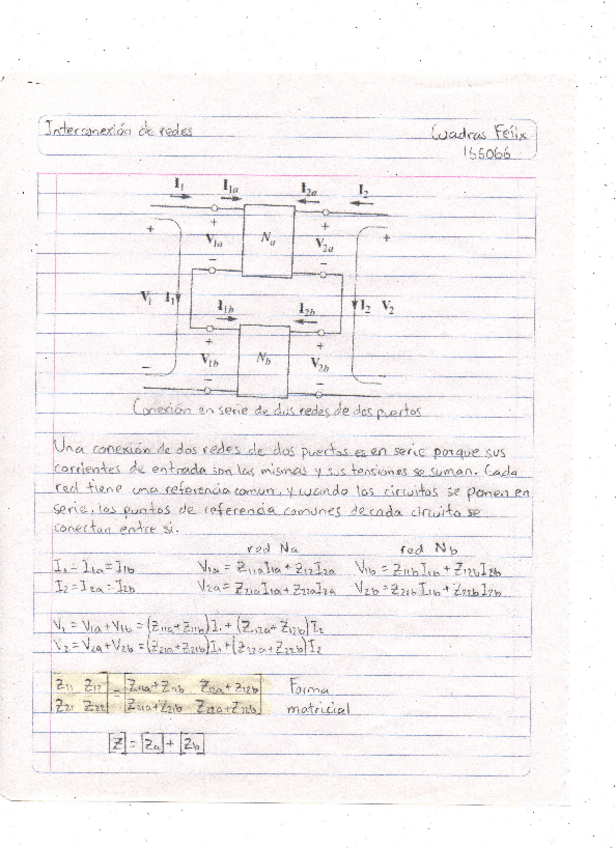 Interconexión de redes
Cuadras Felix
166066
I₁ I₁a I₂a I₂
+ + + +
V₁a Na V₂a
− −
V₁ I₁ I₁b I₂b I₂ V₂
+ +
V₁b Nb V₂b
− − − −
Conexión en serie de dos redes de dos puertos
Una conexión de dos redes de dos puertos es en serie porque sus
corrientes de entrada son las mismas y sus tensiones se suman. Cada
red tiene una referencia comun, y cuando los circuitos se ponen en
serie, los puntos de referencia comunes de cada circuito se
conectan entre si.
red Na red Nb
I₁ = I₁a = I₁b V₁a = Z₁₁a I₁a + Z₁₂a I₂a V₁b = Z₁₁b I₁b + Z₁₂b I₂b
I₂ = I₂a = I₂b V₂a = Z₂₁a I₁a + Z₂₂a I₂a V₂b = Z₂₁b I₁b + Z₂₂b I₂b
V₁ = V₁a + V₁b = (Z₁₁a + Z₁₁b) I₁ + (Z₁₂a + Z₁₂b) I₂
V₂ = V₂a + V₂b = (Z₂₁a + Z₂₁b) I₁ + (Z₂₂a + Z₂₂b) I₂
[Z₁₁ Z₁₂] = [Z₁₁a + Z₁₁b Z₁₂a + Z₁₂b] Forma
[Z₂₁ Z₂₂] [Z₂₁a + Z₂₁b Z₂₂a + Z₂₂b] matricial
[Z] = [Za] + [Zb]